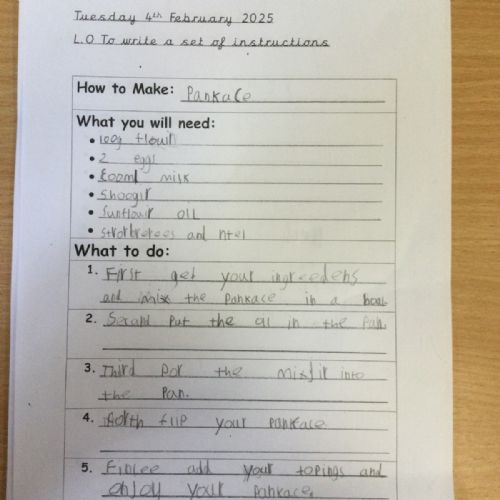 Tuesday 4th February 2025
L.O To write a set of instructions
How to Make: Pankace
What you will need:
• flour
• 2 eggs
• milk
• Shoogir
• Sunflowir oil
• and
What to do:
1. First get your ingreedens
and mix the Pankace in a
2. Second Put the in the Pan.
3. Third por the into
the Pan.
4. flip your Pankace
5. Finlee add your topings and
enjoy your Pankaces